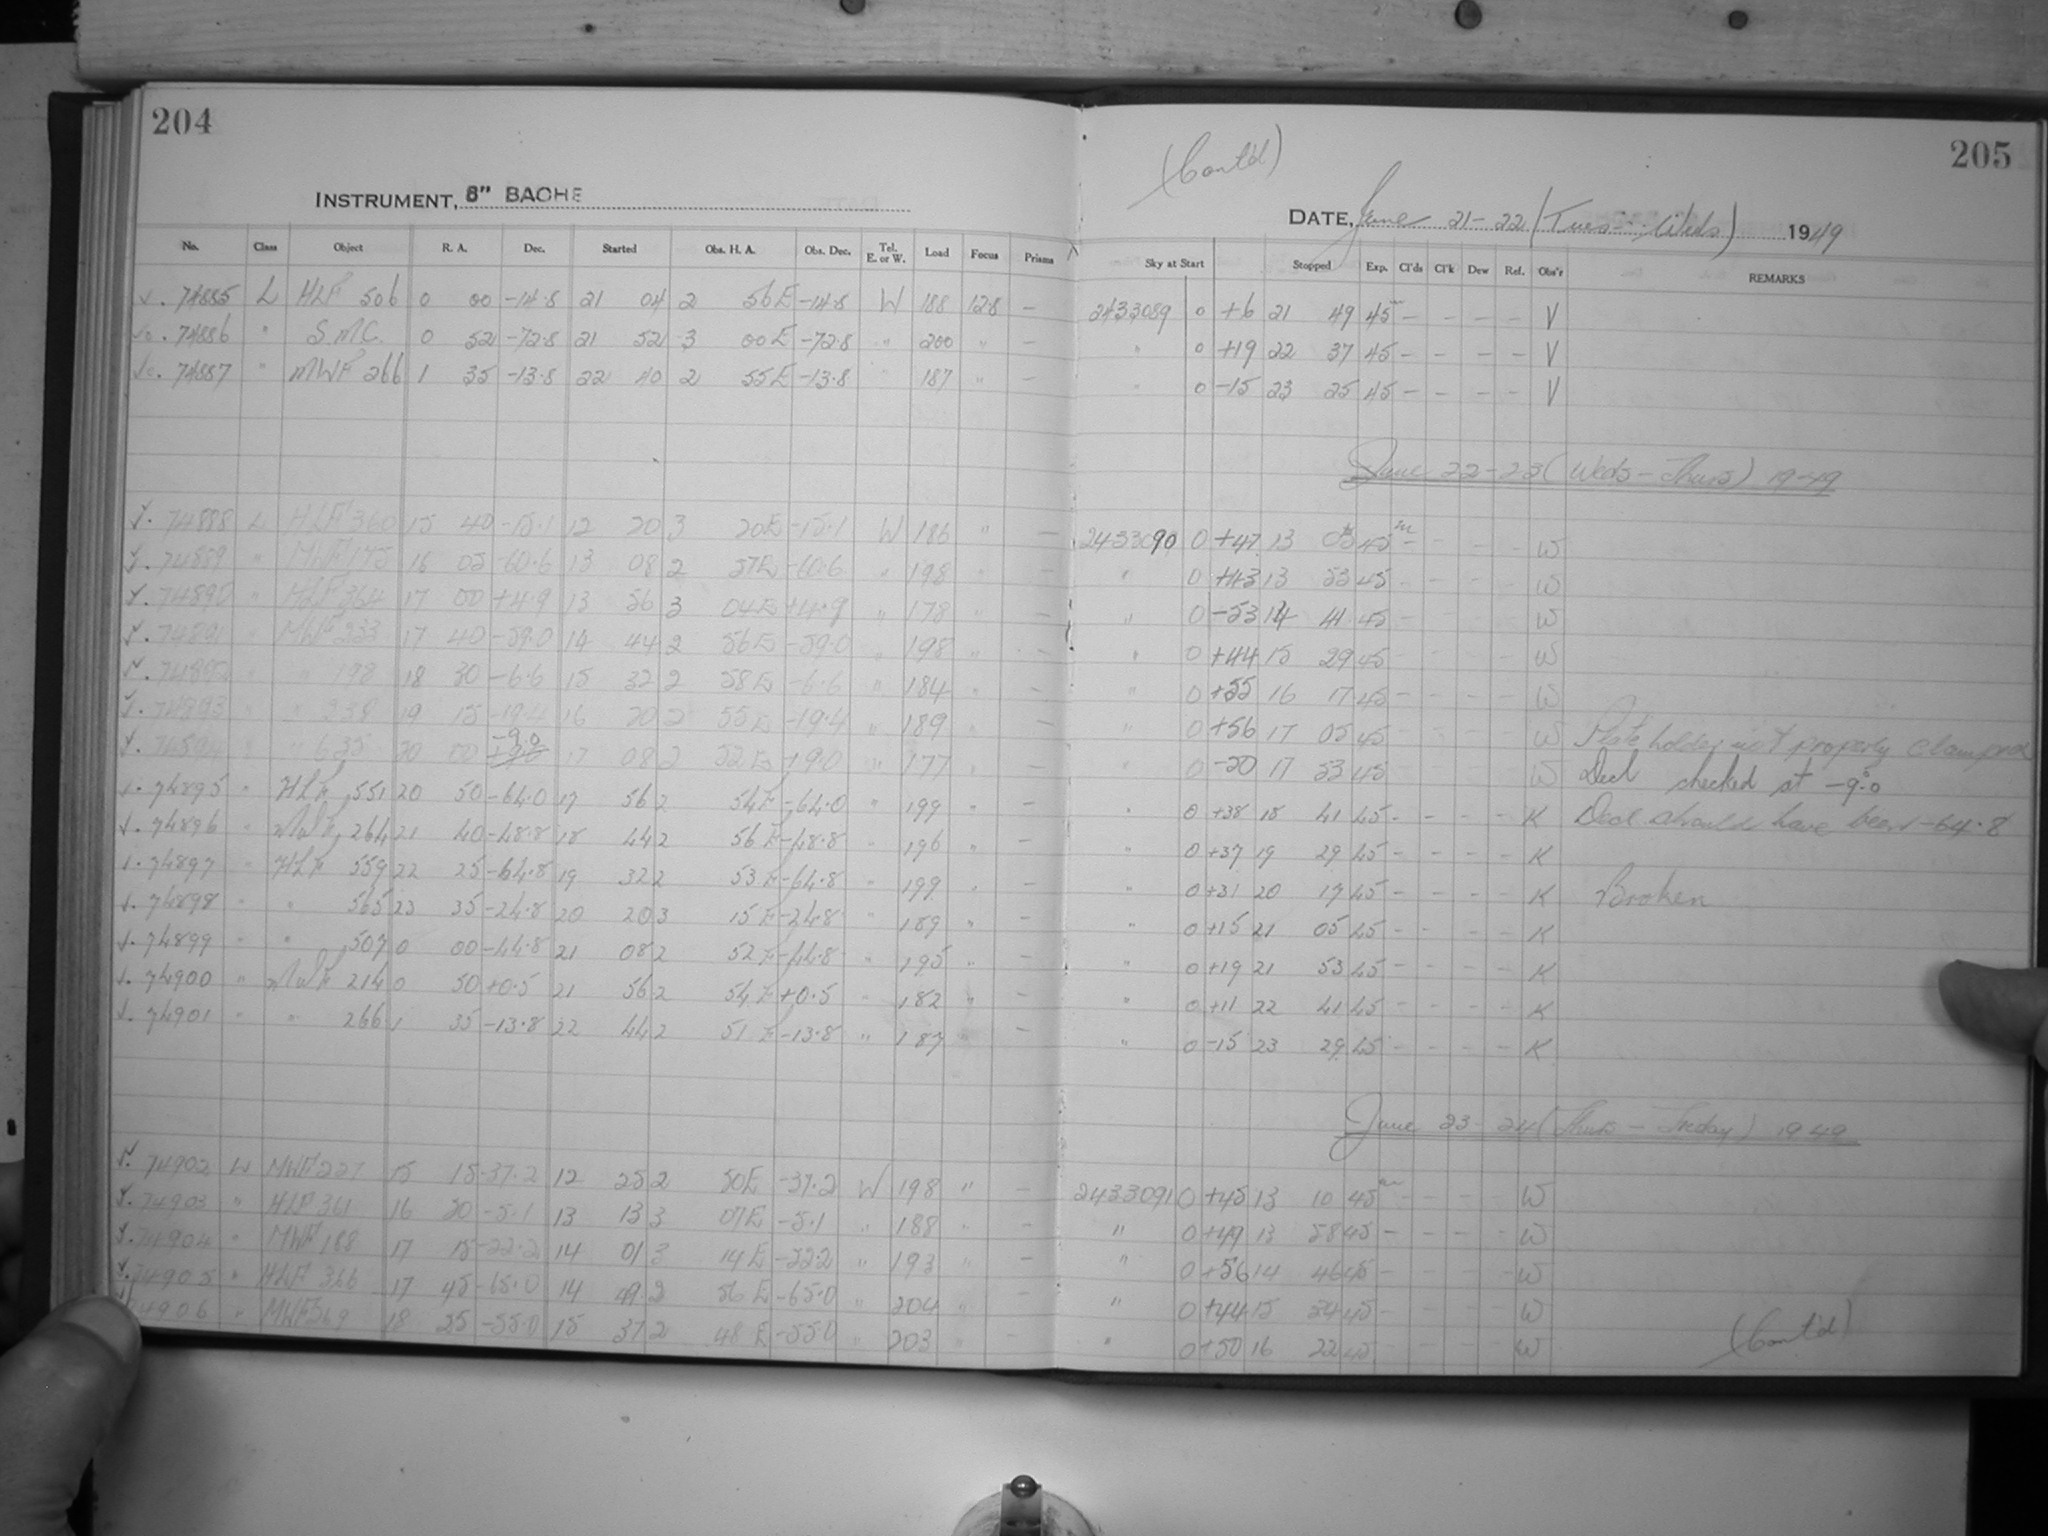 204
205
(Cont'd)
INSTRUMENT, 8" BACHE
DATE, June 21-22 (Tues-Weds) 1949
No. Class Object R. A. Dec. Started Obs. H. A. Obs. Dec. Tel. E. or W. Load Focus Prisms Sky at Start Stopped Exp. Cl'ds Cl'k Dew Ref. Obs'r REMARKS
74885 L HLF 506 0 00 -14.8 21 04 2 56E -14.8 W 188 12.8 — 2433089 0 +6 21 49 45m — — — — V
74886 " S.M.C. 0 52 -72.8 21 52 3 00E -72.8 " 200 " — " 0 +19 22 37 45 — — — — V
74887 " MWF 266 1 35 -13.8 22 40 2 55E -13.8 187 " — " 0 -15 23 25 45 — — — — V
June 22-23 (Weds-Thurs) 1949
74888 L HLF 360 15 40 -15.1 12 20 3 20E -15.1 W 186 " — 2433090 0 +47 13 05 45m — — — — W
74889 " MWF 175 16 05 -60.6 13 08 2 57E -60.6 " 198 " — " 0 +43 13 53 45 — — — W
74890 " HLF 364 17 00 +4.9 13 56 3 04E +4.9 " 178 " — " 0 -53 14 41 45 — — W
74891 " MWF 233 17 40 -59.0 14 44 2 56E -59.0 " 198 " — " 0 +44 15 29 45 — — — W
74892 " " 198 18 30 -6.6 15 32 2 58E -6.6 " 184 " — " 0 +55 16 17 45 — — — — W
74893 " " 238 19 15 -19.4 16 20 2 55E -19.4 " 189 " — " 0 +56 17 05 45 — W Plate holder not properly clamped
74894 " " 635 20 00 -9.0 17 08 2 52E +9.0 " 177 " — " 0 -20 17 53 45 W Decl checked at -9.0
74895 " HLF 551 20 50 -64.0 17 56 2 54E -64.0 " 199 " — " 0 +38 18 41 45 — — — — K Decl should have been -64.8
74896 " MWF 264 21 40 -48.8 18 44 2 56E -48.8 " 196 " — " 0 +37 19 29 45 — — — — K
74897 " HLF 559 22 25 -64.8 19 32 2 53E -64.8 " 199 " — " 0 +31 20 17 45 — — — — K Broken
74898 " " 565 23 35 -24.8 20 20 3 15E -24.8 " 189 " — " 0 +15 21 05 45 — — — — K
74899 " " 507 0 00 -44.8 21 08 2 52E -44.8 " 195 " — " 0 +19 21 53 45 — — — — K
74900 " MWF 214 0 50 +0.5 21 56 2 54E +0.5 " 182 " — " 0 +11 22 41 45 — — — — K
74901 " " 266 1 35 -13.8 22 44 2 51E -13.8 " 187 " — " 0 -15 23 29 45 — — — — K
June 23-24 (Thurs-Friday) 1949
74902 MWF 227 15 15 -37.2 12 25 2 50E -37.2 W 198 " — 2433091 0 +45 13 10 45m — — — — W
74903 " HLF 361 16 20 -5.1 13 13 3 07E -5.1 " 188 " — " 0 +49 13 58 45 — — — — W
74904 " MWF 188 17 15 -22.2 14 01 3 14E -22.2 " 193 " — " 0 +56 14 46 45 — — — — W
74905 " HLF 366 17 45 -65.0 14 49 2 56E -65.0 " 204 " — " 0 +44 15 34 45 — — — — W
74906 " MWF 369 18 25 -55.0 15 37 2 48E -55.0 " 203 " — " 0 +50 16 22 45 — — — — W
(Cont'd)